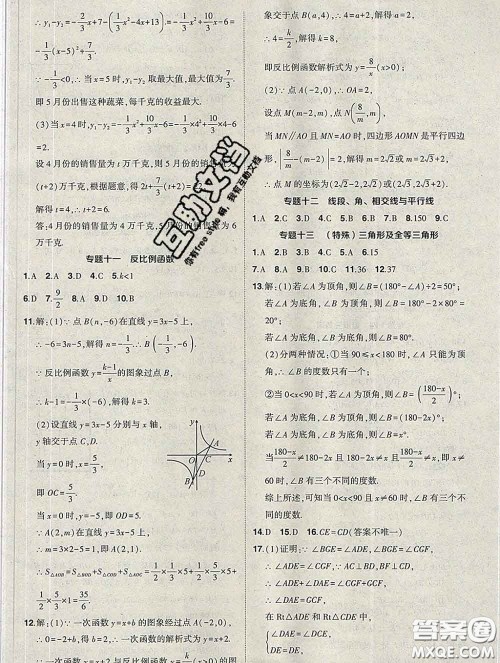 ∴ y₁-y₂=-2/3x+7-(1/3x²-4x+13)=-1/3x²+10/3x-6=
-1/3(x-5)²+7/3.
∵ -1/3<0, ∴ 当 x=5 时, y₁-y₂ 取最大值, 最大值为 7/3,
即 5 月份出售这种蔬菜, 每千克的收益最大.
(3)
设 4 月份的销售量为 t 万千克, 则 5 月份的销售量为
根据题意, 得 2t+7/3(t+2)=
专题十一 反比例函数
1. A 2. A 3. C 4. C 5. k<1
6. D 7. 9/2 8. D 9. A 10. B
11. 解: (1)∵ 点 B(n,-6) 在直线 y=3x-5 上,
∴ -6=3n-5, 解得 n=-1/3, ∴ B(-1/3,-6).
∵ 反比例函数 y=(k-1)/x 的图象过点 B,
∴ k-1=-1/3×(-6), 解得 k=3.
(2) 设直线 y=3x-5 分别与 x 轴,
y 轴交于点 C,D.
当 y=0 时, 3x-5=0, x=5/3,
即 OC=5/3.
当 x=0 时, y=-5, 即 OD=5.
∵ A(2,m) 在直线 y=3x-5 上,
∴ m=3×2-5=1, 即 A(2,1),
∴ S△AOB=S△BOD+S△COD+S△AOC=1/2×1/3×5+1/2×5/3×5+
1/2×5/3×1=35/6.
12. 解: (1)∵ 一次函数 y=x+b 的图象经过点 A(-2,0),
∴ 0=-2+b, 得 b=2, ∴ 一次函数的解析式为 y=x+2.
象交于点 B(a,4), ∴ 4=a+2, 解得 a=2,
∴ 4=k/2, 解得 k=8,
即反比例函数解析式为 y=8/x(x>0);
(2)∵ 点 A(-2,0), ∴ OA=2,
设点 M(m-2,m), 点 N(8/m,m),
当 MN∥AO 且 MN=AO 时, 四边形 AOMN 是平行四边
形, |8/m-(m-2)|=2, 解得 m=2√2 或 m=2√3+2,
∴ 点 M 的坐标为 (2√2-2,2√2) 或 (2√3,2√3+2).
专题十二 线段、角、相交线与平行线
8. 150 9. C
专题十三 (特殊)三角形及全等三角形
11. 36 12. 37
13. 解: (1) 若∠A 为顶角, 则∠B=(180°-∠A)÷2=50°;
若∠A 为底角, ∠B 为顶角, 则∠B=180°-2×80°=
20°;
若∠A 为底角, ∠B 为底角, 则∠B=80°;
(2) 分两种情况: ①当 90≤x<180 时, ∠A 只能为顶角,
∴ ∠B 的度数只有一个;
②当 0<x<90 时, 若∠A 为顶角, 则∠B=((180-x)/2)°;
若∠A 为底角, ∠B 为顶角, 则∠B=(180-2x)°;
若∠A 为底角, ∠B 为底角, 则∠B=x°.
当 (180-x)/2≠180-2x 且 180-2x≠x 且 (180-x)/2≠x, 即
x≠60 时, ∠B 有三个不同的度数.
综上所述, 可知当 0<x<90 且 x≠60 时, ∠B 有三个不
同的度数.
14. B 15. D 16. CE=CD(答案不唯一)
17. (1) 证明: ∵ ∠BGE=∠ADE, ∠BGE=∠CGF,
∴ ∠ADE=∠CGF, ∵ AC⊥BD, BF⊥CD,
∴ ∠ADE+∠DAE=∠CGF+∠GCF,
∴ ∠DAE=∠GCF, ∴ AD=CD;
在 Rt△ADE 和 Rt△CDE 中,
∠DAE=
DE=DE,
互助文档
答案圈
MXQE.COM